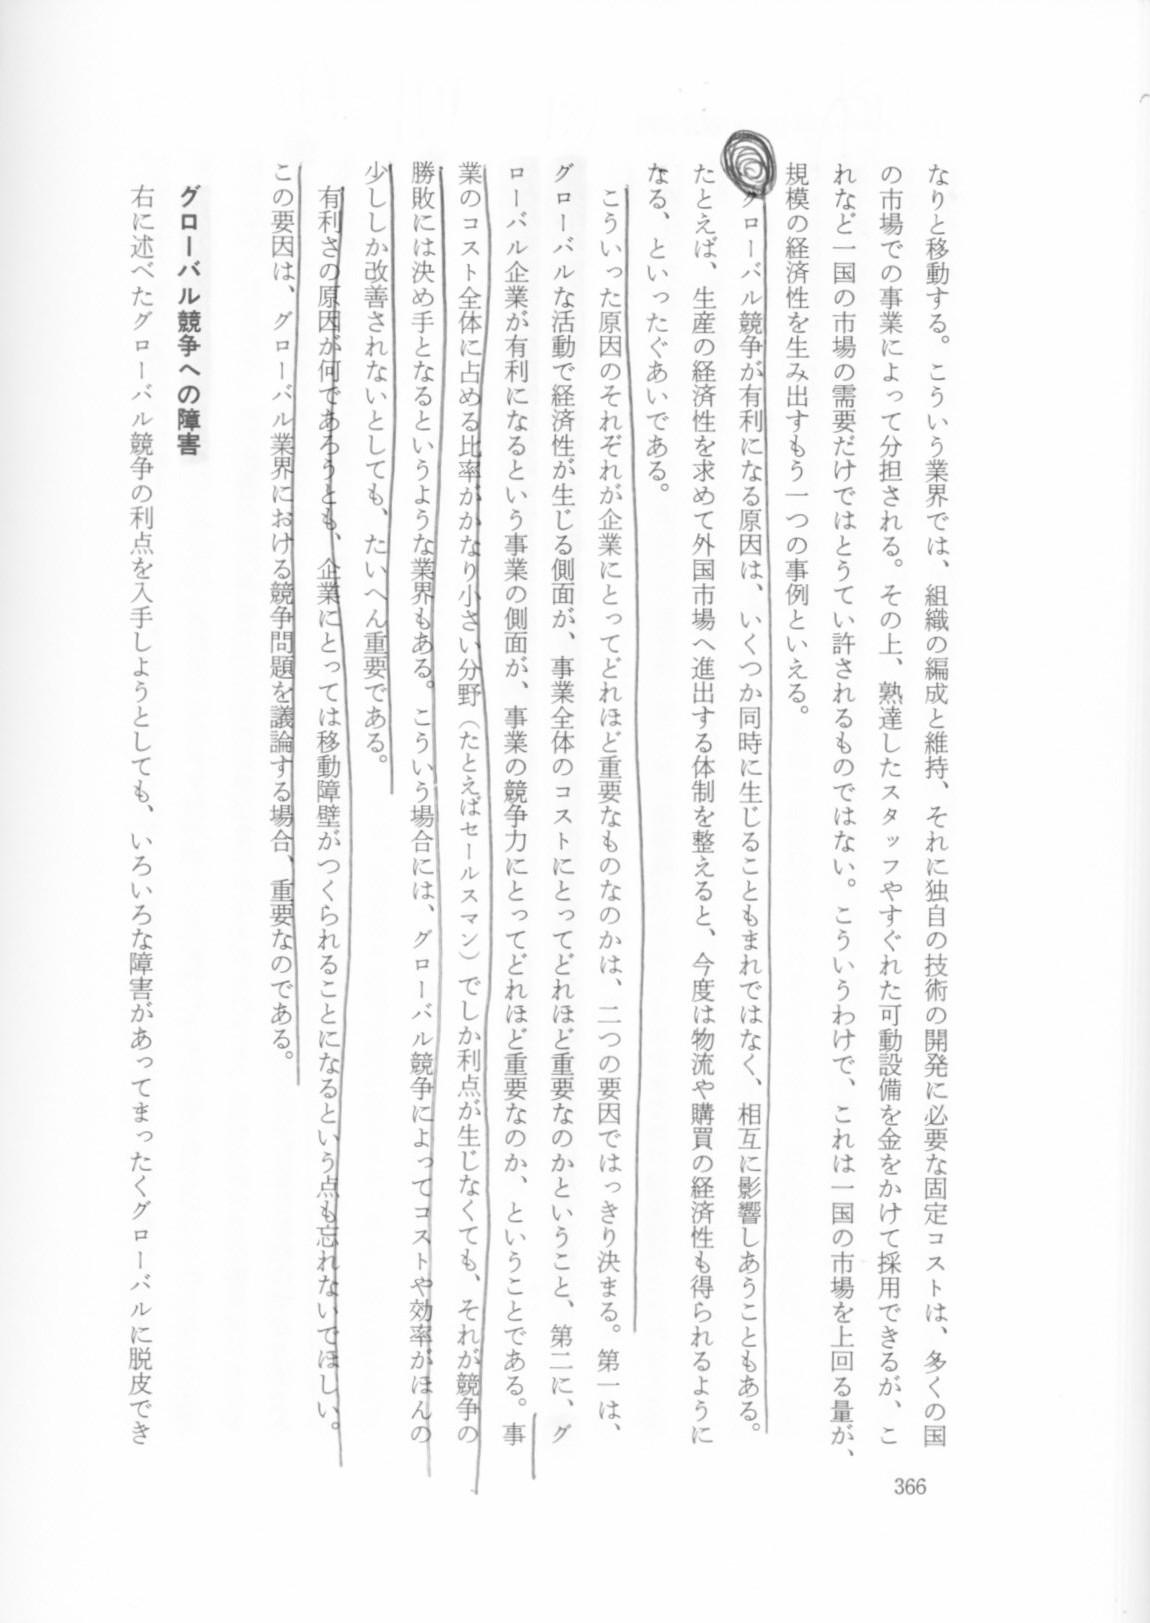 なりと移動する。こういう業界では、組織の編成と維持、それに独自の技術の開発に必要な固定コストは、多くの国
の市場での事業によって分担される。その上、熟達したスタッフやすぐれた可動設備を金をかけて採用できるが、こ
れなど一国の市場の需要だけではとうてい許されるものではない。こういうわけで、これは一国の市場を上回る量が、
規模の経済性を生み出すもう一つの事例といえる。
グローバル競争が有利になる原因は、いくつか同時に生じることもまれではなく、相互に影響しあうこともある。
たとえば、生産の経済性を求めて外国市場へ進出する体制を整えると、今度は物流や購買の経済性も得られるように
なる、といったぐあいである。
こういった原因のそれぞれが企業にとってどれほど重要なものなのかは、二つの要因ではっきり決まる。第一は、
グローバルな活動で経済性が生じる側面が、事業全体のコストにとってどれほど重要なのかということ、第二に、グ
ローバル企業が有利になるという事業の側面が、事業の競争力にとってどれほど重要なのか、ということである。事
業のコスト全体に占める比率がかなり小さい分野（たとえばセールスマン）でしか利点が生じなくても、それが競争の
勝敗には決め手となるというような業界もある。こういう場合には、グローバル競争によってコストや効率がほんの
少ししか改善されないとしても、たいへん重要である。
有利さの原因が何であろうとも、企業にとっては移動障壁がつくられることになるという点も忘れないでほしい。
この要因は、グローバル業界における競争問題を議論する場合、重要なのである。
グローバル競争への障害
右に述べたグローバル競争の利点を入手しようとしても、いろいろな障害があってまったくグローバルに脱皮でき
366